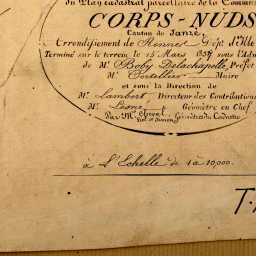 du Plan cadastral parcellaire de la Commun
CORPS-NUDS
Canton de Janzé
Arrondissement de Rennes Dépt. d'Ille
Terminé sur le terrein le 15 Mars 18 sous l'Ad
de Mr. Boby Delachapelle, Préfet
Mr. Maire
et sous la Direction
de Mr. Lambert, Directeur des Contributions
Mr. Géomètre en Chef
Par Mr. Géomètre du Cadastre
à l'Echelle de 1 à 10,000.
T.